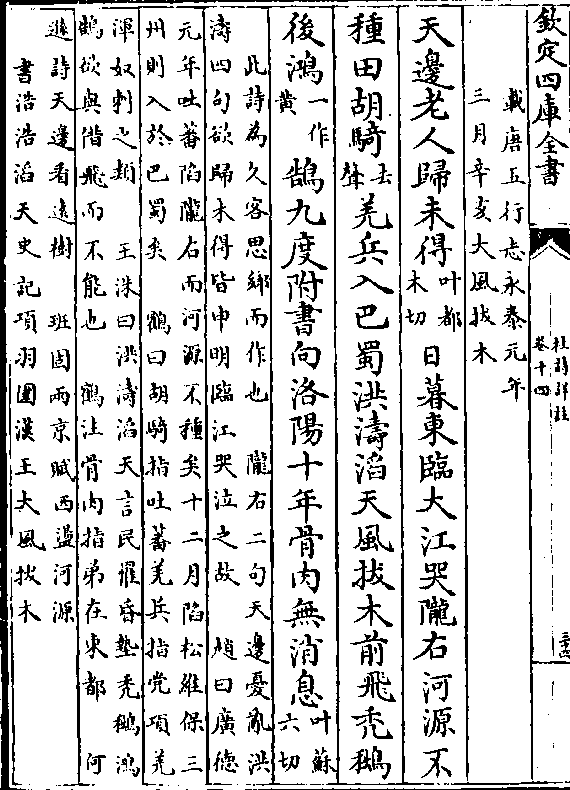 欽定四庫全書
杜詩詳註
卷十四
載唐五行志永泰元年
三月辛亥大風拔木
天邊老人歸未得叶都木切日暮東臨大江哭隴右河源不
種田胡騎去聲羌兵入巴蜀洪濤滔天風拔木前飛禿鶖
後鴻一作黄鵠九度附書向洛陽十年骨肉無消息叶蘇六切
此詩為久客思鄉而作也　隴右二句天邊憂亂洪
濤四句欲歸未得皆申明臨江哭泣之故　趙曰廣德
元年吐蕃陷隴右而河源不種矣十二月陷松維保三
州則入於巴蜀矣　鶴曰胡騎指吐蕃羌兵指党項羌
渾奴刺之類　王洙曰洪濤滔天言民罹昏墊禿鶖鴻
鵠欲與偕飛而不能也　鶴注骨肉指弟在東都　何
遜詩天邊看遠樹　班固兩京賦西盪河源
書浩浩滔天史記項羽圍漢王大風拔木